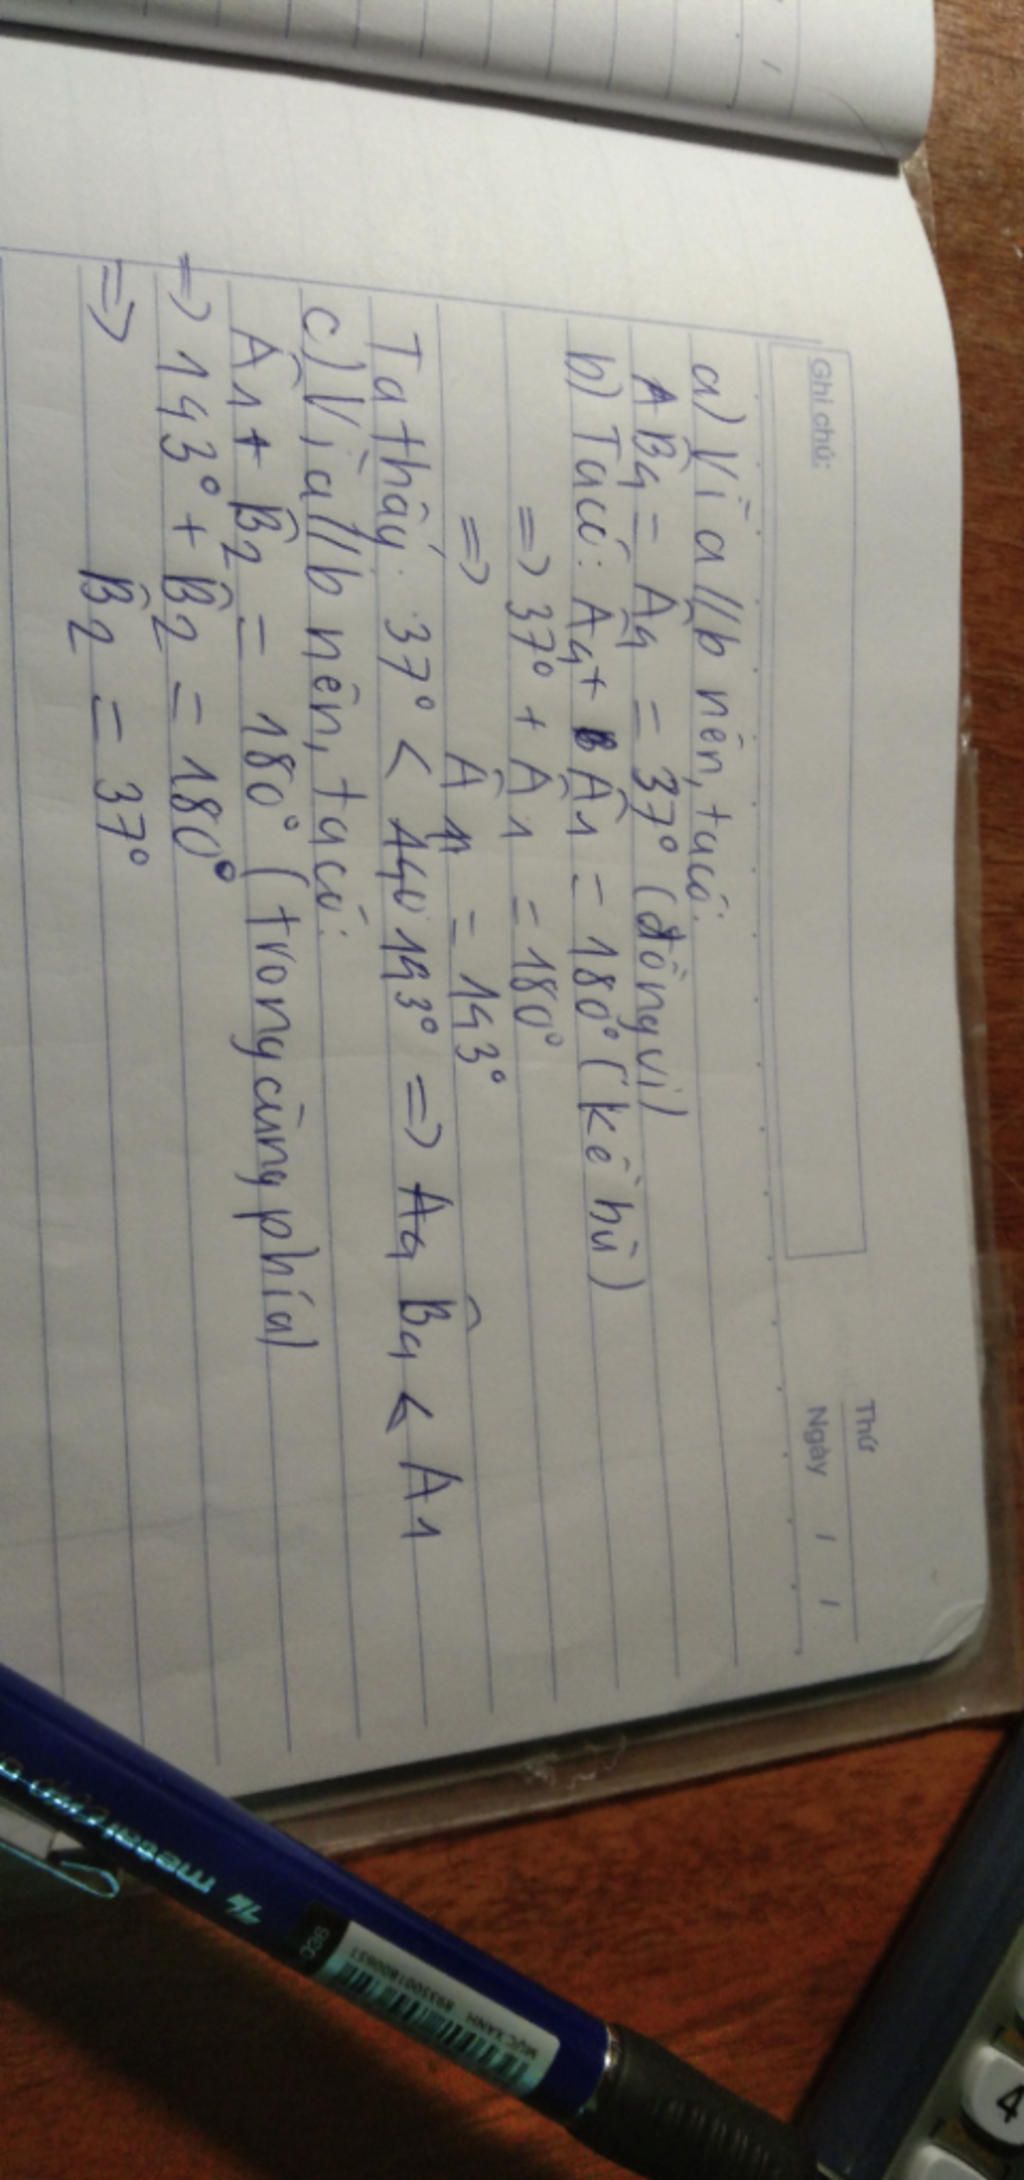 Ghi chú:
Thứ
Ngày / /
a) Vì a//b nên, ta có.
B̂4 = Â4 = 37° (đồng vị)
b) Ta có: Â4 + Â1 = 180° (kề bù)
=> 37° + Â1 = 180°
=> Â1 = 143°
Ta thấy: 37° < 143° => B̂4 < A1
c) Vì a//b nên, ta có:
Â1 + B̂2 = 180° (trong cùng phía)
=> 143° + B̂2 = 180°
=> B̂2 = 37°
MỰC XANH
4